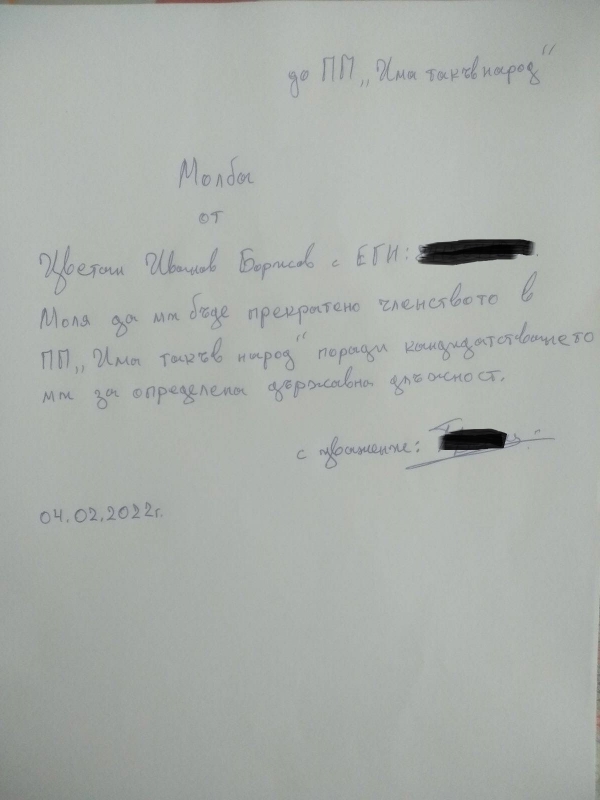 до ПП „Има такъв народ“
Молба
от
Цветан Иванов Борисов с ЕГН:
Моля да ми бъде прекратено членството в
ПП „Има такъв народ“ поради кандидатстването
ми за определена държавна длъжност.
с уважение:
04.02.2022г.